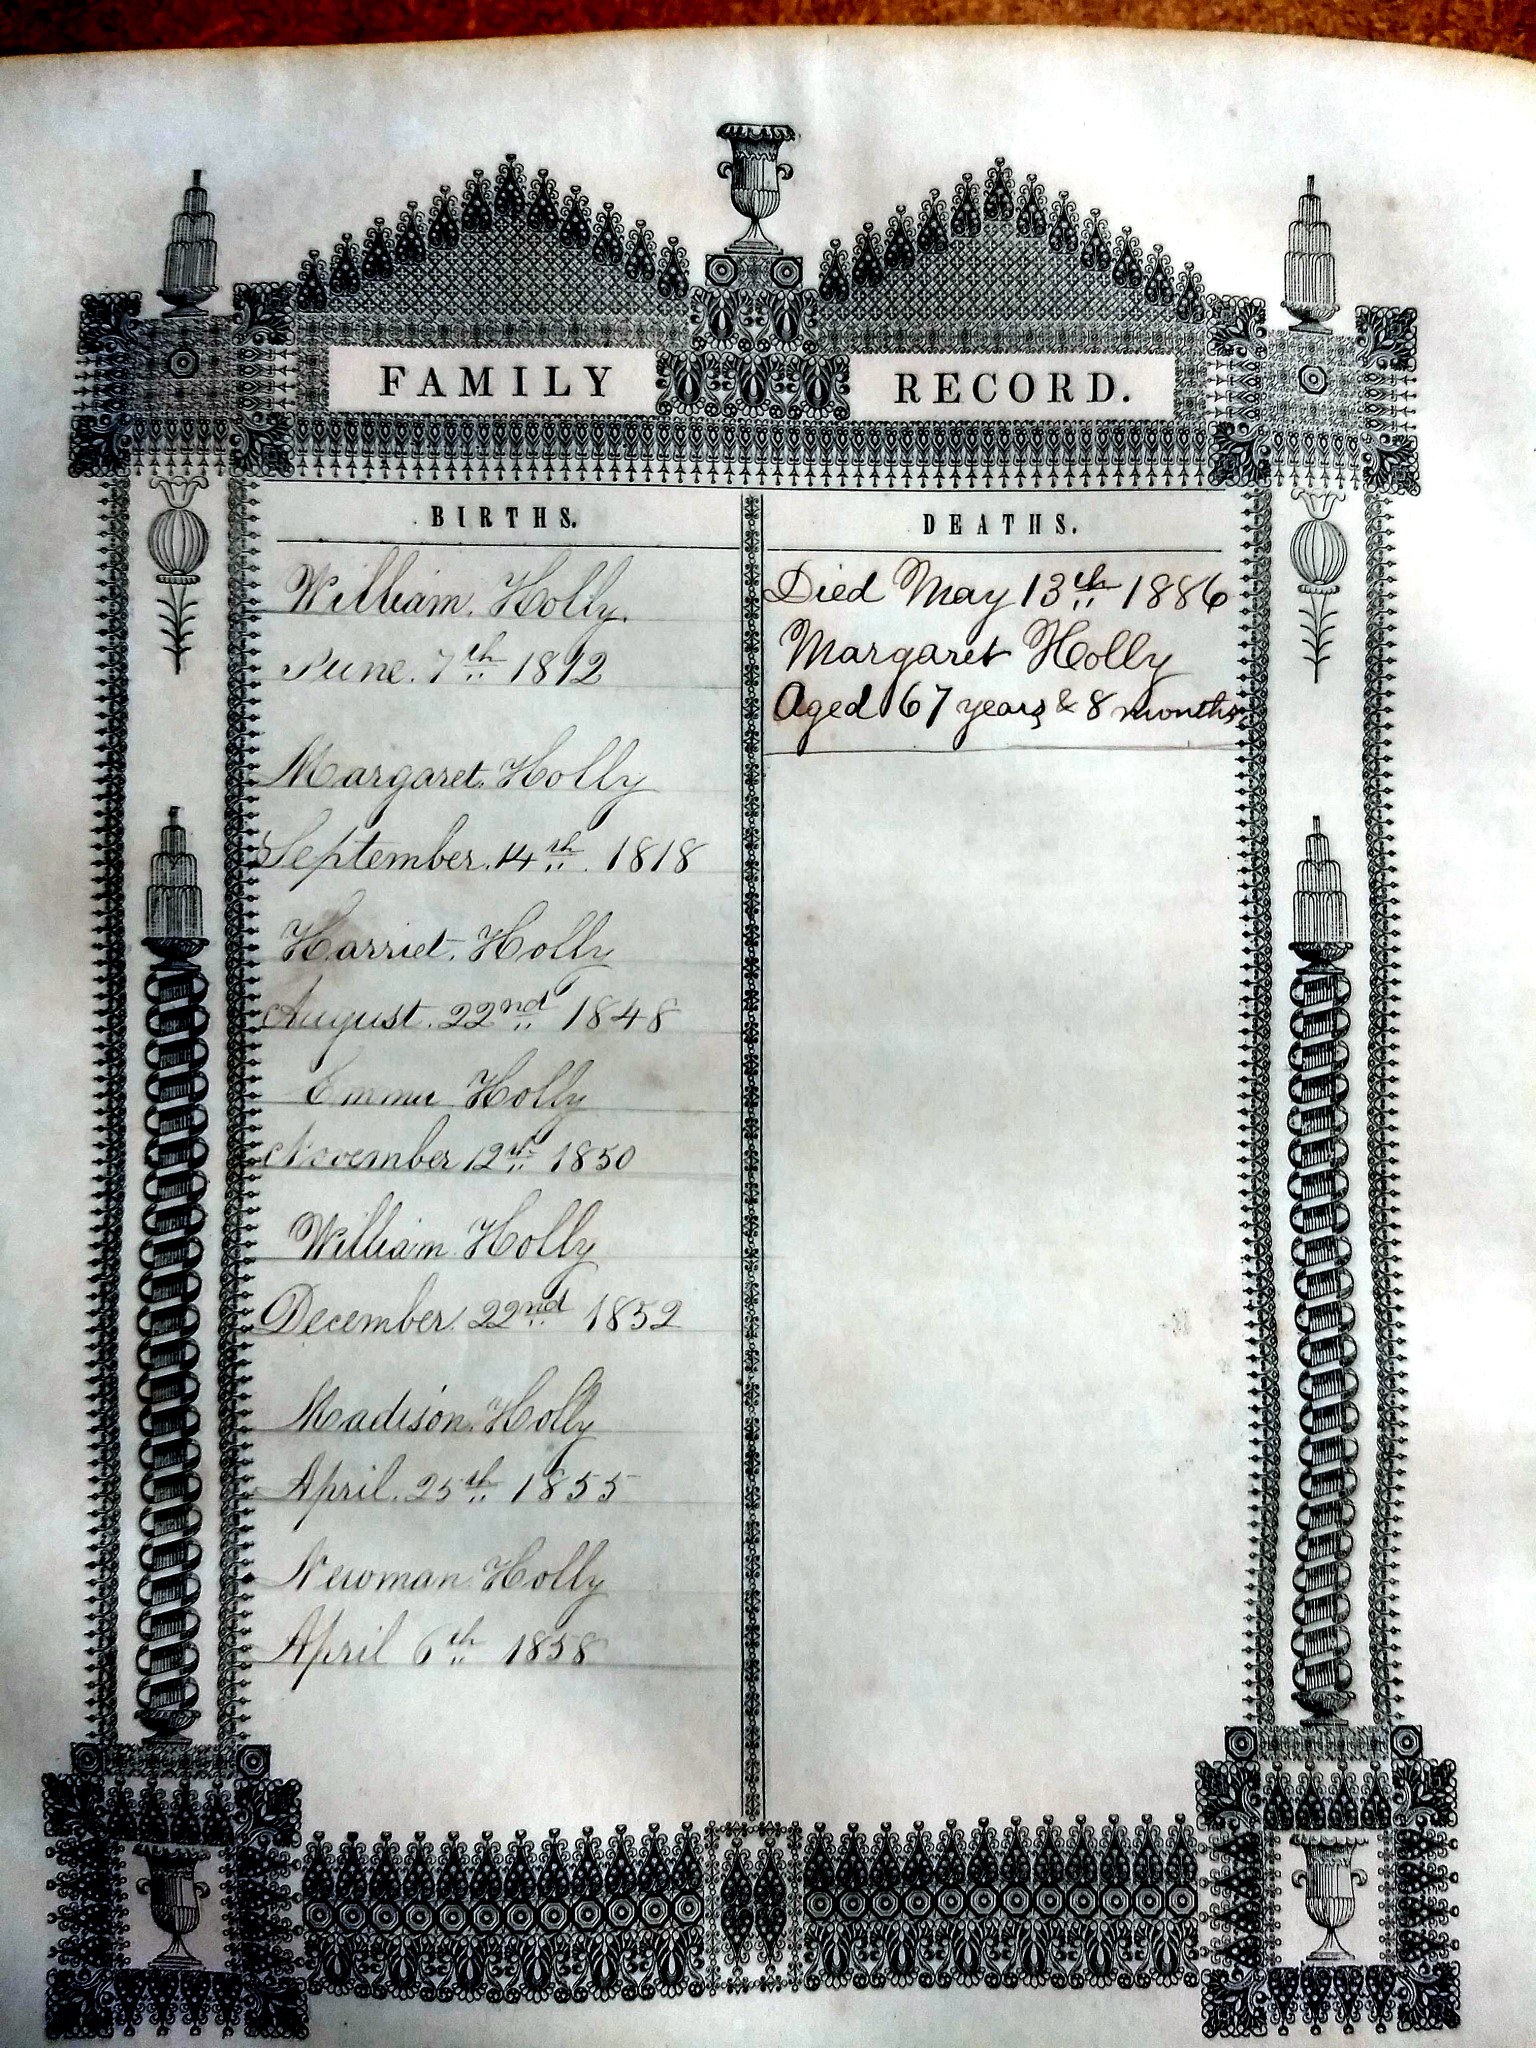 FAMILY RECORD.
BIRTHS.
William. Holly.
June. 7th 1812
Margaret. Holly
September. 14th. 1818
Harriet. Holly
August. 22nd 1848
Emma Holly
November 12th 1850
William. Holly
December. 22nd 1852
Madison. Holly
April. 25th 1855
Newman Holly
April 6th 1858
DEATHS.
Died May 13th 1886
Margaret Holly
Aged 67 years & 8 months